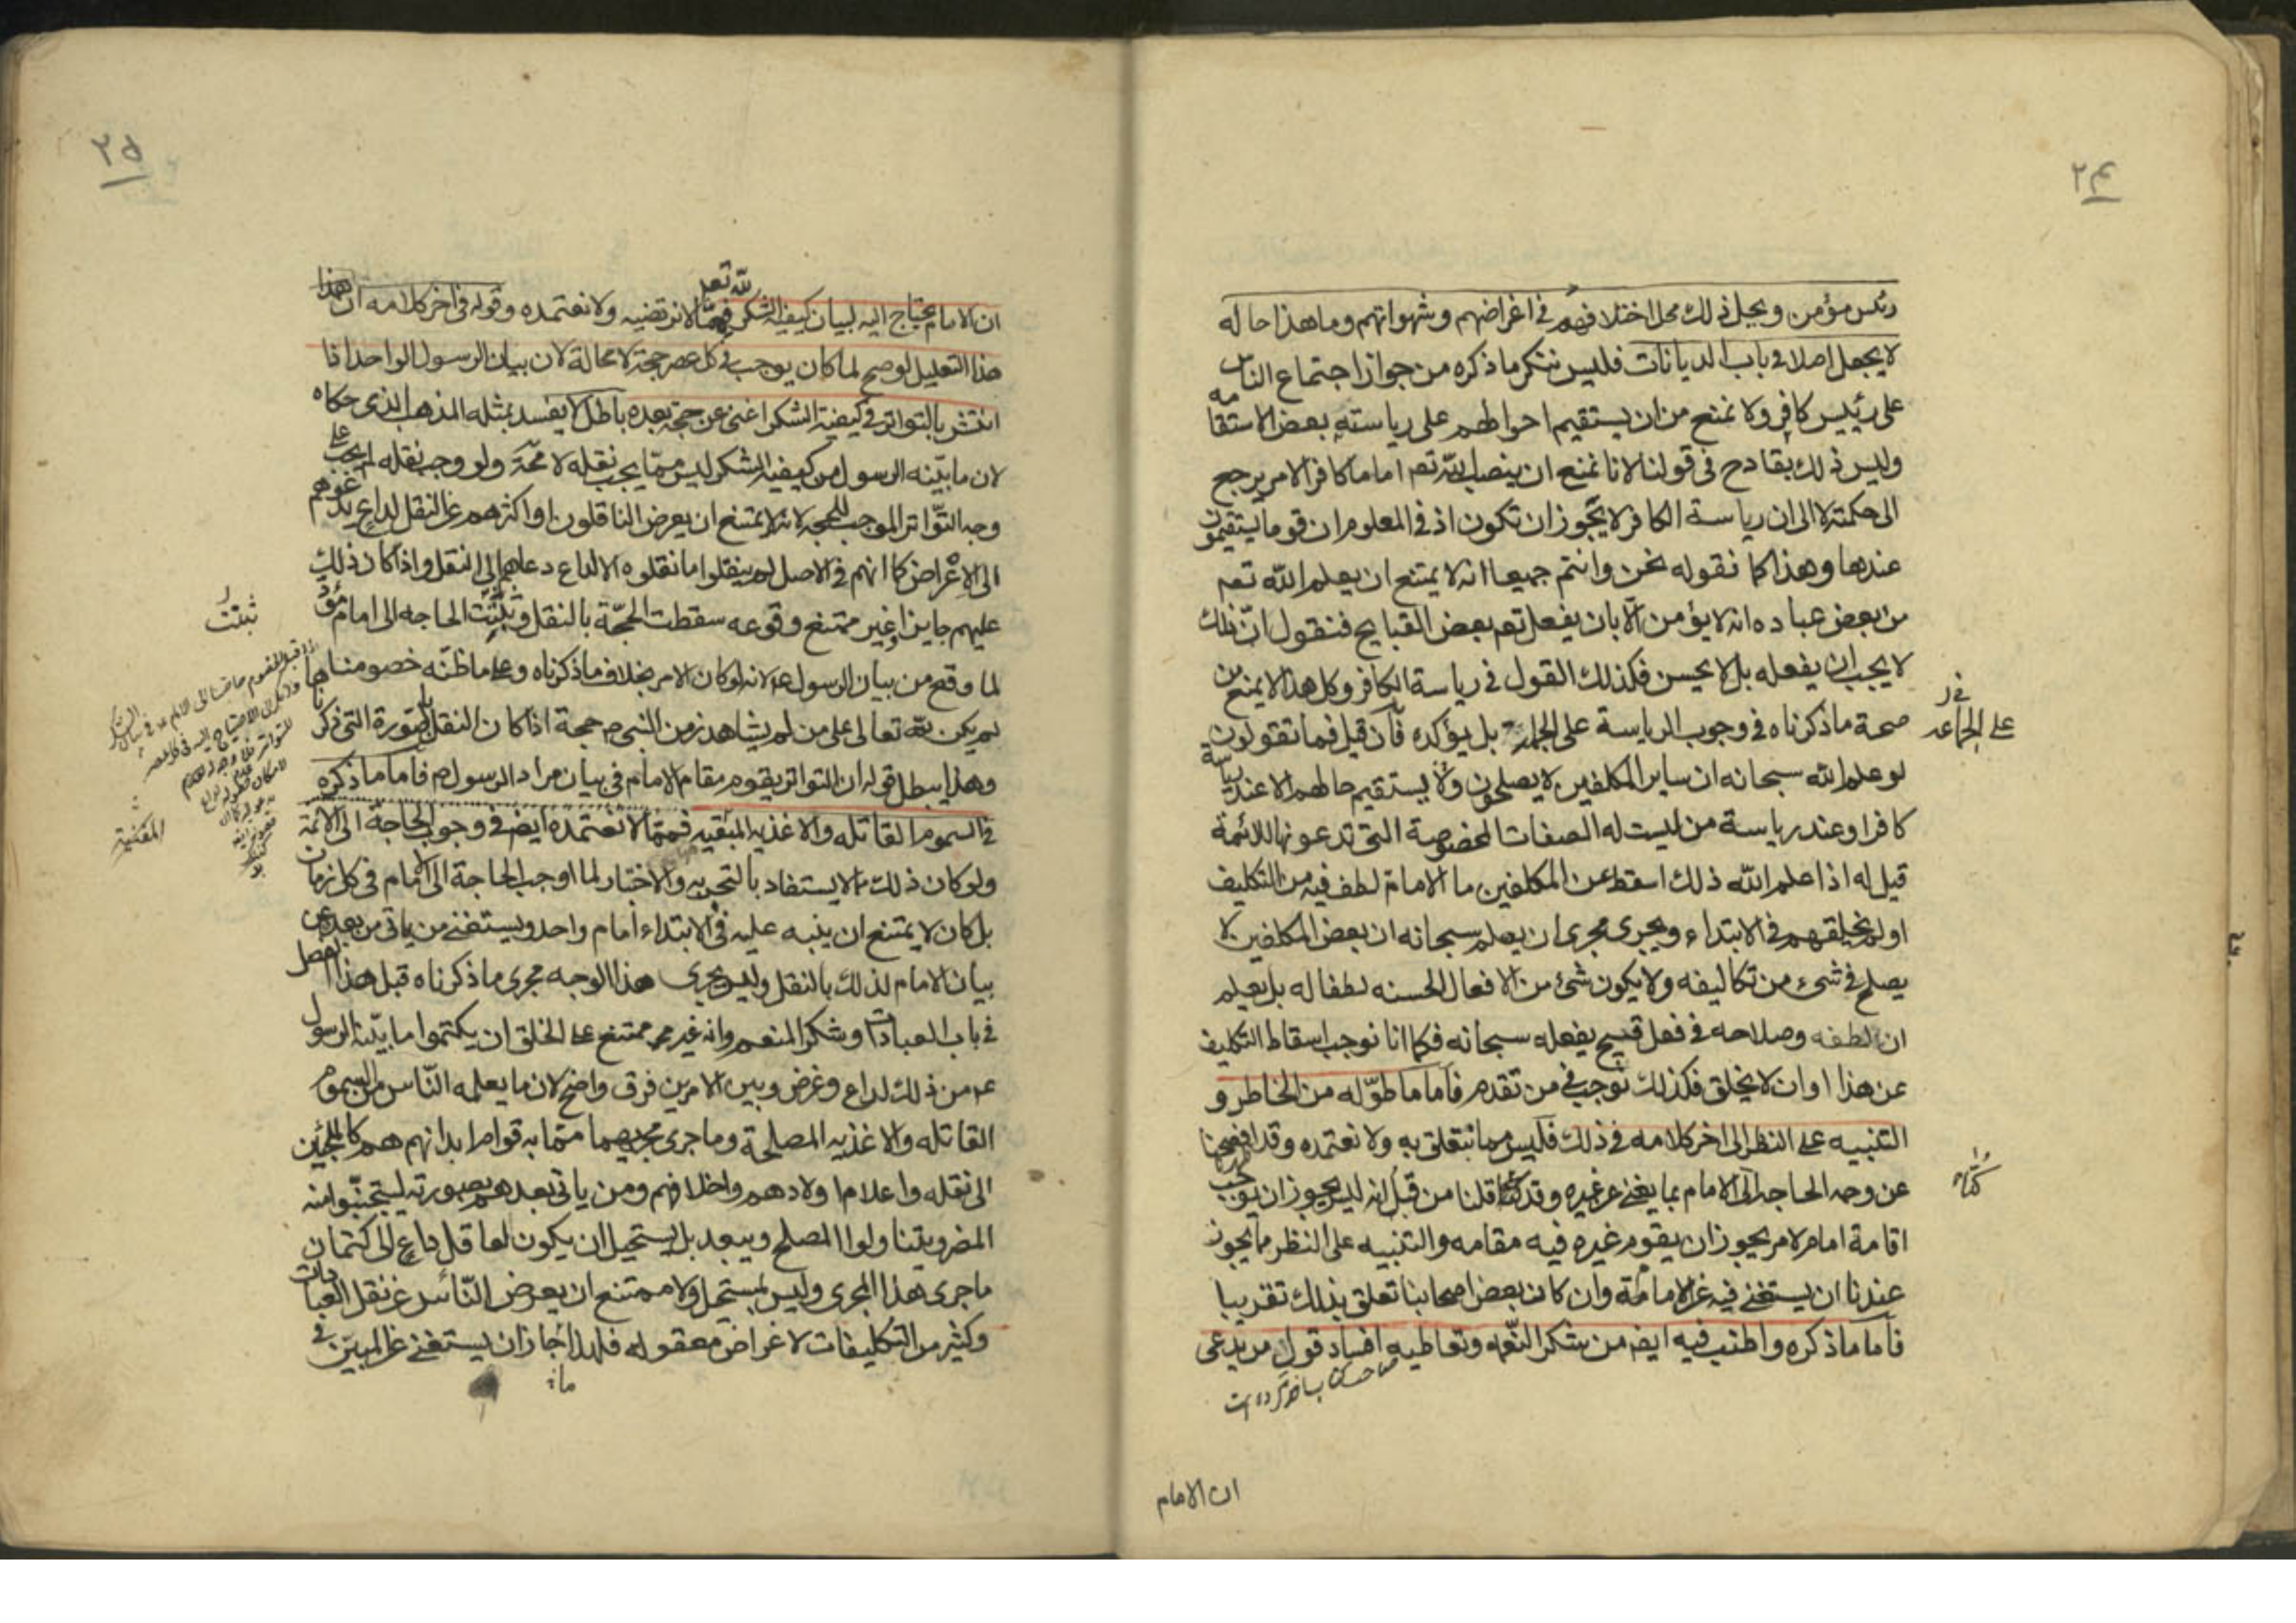 ٢٤
رئيس مؤمن ويحيل ذلك محل اختلافهم في اغراضهم وشهواتهم وما هذا حاله
لا يجعل اصلا في باب الديانات فليس ننكر ما ذكره من جواز اجتماع الناس
على رئيس كافر ولا نمنع من ان يستقيم احوالهم على رياسته بعض الاستقامه
وليس ذلك بقادح في قولنا لانا نمنع ان ينصب الله تعم اماما كافرا لامر يرجع
الى حكمته لا الى ان رياسة الكافر لا يجوز ان تكون اذ في المعلوم ان قوما يستقيمون
عندها وهذا كما نقوله نحن وانتم جميعا انه لا يمتنع ان يعلم الله تعم
من بعض عباده انه لا يؤمن الا بان يفعل تعم بعض القبايح فنقول ان ذلك
لا يجب ان يفعله بل لا يحسن فكذلك القول في رياسة الكافر وكل هذا لا يمنع من
صحة ما ذكرناه في وجوب الرياسة على الجملة بل يؤكده فان قيل فما تقولون
في
على الجماعه
لو علم الله سبحانه ان ساير المكلفين لا يصلحون ولا يستقيم حالهم الا عند رياسة
كافر او عند رياسة من ليست له الصفات المخصوصة التي تدعونها للائمة
قيل له اذا علم الله ذلك اسقط عن المكلفين ما الامام لطف فيه من التكليف
او لم يخلقهم في الابتداء ويجرى مجرى ان يعلم سبحانه ان بعض المكلفين لا
يصلح في شيء من تكاليفه ولا يكون شئ من الافعال الحسنه لطفا له بل يعلم
ان لطفه وصلاحه في فعل قبيح يفعله سبحانه فكما انا نوجب اسقاط التكليف
عن هذا او ان لا يخلق فكذلك نوجب في من تقدم فاما ما طوّله من الخاطر و
التنبيه على النظر الى اخر كلامه في ذلك فليس مما نتعلق به ولا نعتمده وقد افصحنا
عن وجه الحاجه الى الامام بما يغني عن غيره وقد كنا قلنا من قبل انه ليس يجوز ان يوجب
اقامة امام لامر يجوز ان يقوم غيره فيه مقامه والتنبيه على النظر مما يجوز
عندنا ان يستغنى فيه عن الامامة وان كان بعض اصحابنا تعلق بذلك تقريبا
فاما ما ذكره واطنب فيه ايضا من شكر النعمه وتعاطيه افساد قول من يدعى
ان الامام
٢٥
ان الامام يحتاج اليه لبيان كيفية الشكر لله تعم فمما لا نرتضيه ولا نعتمده وقوله في اخر كلامه ان
هذا التعليل لو صح لما كان يوجب في كل عصر حجة لا محالة لان بيان الرسول الواحد اذا
انتشر بالتواتر في كيفية الشكر اغنى عن حجة بعده باطل لا يفسد بمثله المذهب الذى حكاه
لان ما بيّنه الرسول من كيفية الشكر ليس مما يجب نقله لا محة ولو وجب نقله لم يجب على
وجه التواتر الموجب للحجه لانه لا يمتنع ان يعرض الناقلون او اكثرهم عن النقل لداع يدعوهم
الى الاغراض كما انهم في الاصل لم ينقلوا ما نقلوه الا لداع دعاهم الى النقل واذا كان ذلك
عليهم جايزا وغير ممتنع وقوعه سقطت الحجّة بالنقل وثبتت الحاجه الى امام
ثبتت
لما وقع من بيان الرسول ع لانه لو كان الامر بخلاف ما ذكرناه وعلى ما ظنّه خصومنا
لم يكن لله تعالى على من لم يشاهد زمن النبي ص حجة اذا كان النقل بالصورة التي ذكرناها
وهذا يبطل قوله ان التواتر يقوم مقام الامام في بيان مراد الرسول ص فاما ما ذكره
في السموم القاتله والاغذيه المبقيه فمما لا نعتمده ايضا في وجوب الحاجة الى الائمة
ولو كان ذلك مما لا يستفاد بالتجربه والاختبار لما اوجب الحاجة الى الامام في كل زمان
بل كان لا يمتنع ان ينبه عليه في الابتداء امام واحد ويستغنى من ياتى من بعده عن
بيان الامام لذلك بالنقل وليس يجرى هذا الوجه مجرى ما ذكرناه قبل هذا الفصل
في باب العبادات وشكر المنعم وانه غير ممتنع على الخلق ان يكتموا ما بيّنه الرسول
ع من ذلك لداع وغرض وبين الامرين فرق واضح لان ما يعلمه النّاس من السموم
القاتله والاغذيه المصلحة وما جرى مجريهما مما به قوام ابدانهم هم كالملجئين
الى نقله واعلام اولادهم واخلافهم ومن ياتى بعدهم بصورته ليتجنّبوا منه
المضر ويتناولوا المصلح ويبعد بل يستحيل ان يكون لعاقل داع الى كتمان
ما جرى هذا المجرى وليس بمستحيل ولا ممتنع ان يعرض النّاس عن نقل العبادات
وكثير من التكليفات لاغراض معقوله فلهذا جاز ان يستغنى عن المبيّن في